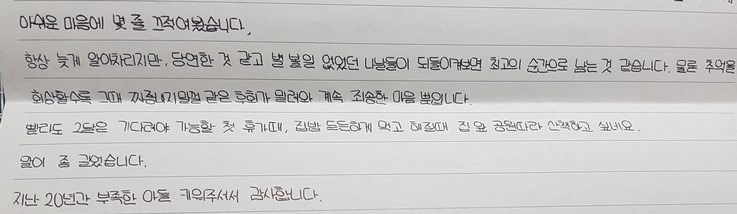 아쉬운 마음에 몇 줄 끄적여봤습니다.
항상 늦게 알아차리지만, 당연한 것 같고 별 볼일 없었던 나날들이 되돌이켜보면 최고의 순간으로 남는 것 같습니다. 물론 추억을
회상할수록 그때 짜증내지말껄 같은 후회가 밀려와 계속 죄송한 마음 뿐입니다.
빨라도 2달은 기다려야 가능할 첫 휴가때, 집밥 든든하게 먹고 해질때 집 앞 공원따라 산책하고 싶네요.
말이 좀 길었습니다.
지난 20년간 부족한 아들 키워주셔서 감사합니다.